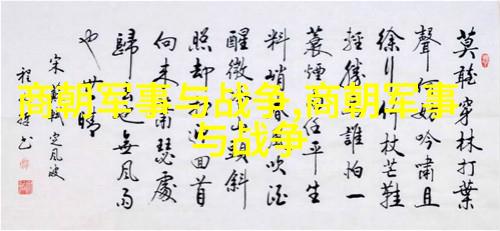 商朝军事与战争,商朝军事
与战争
莫聽穿林打葉
聲何妨吟嘯且
徐行竹杖芒鞋
輕勝誰怕一
蓑煙任平生
料峭春吹酒
醒微山頭斜
照却迎回首
向來瑟處
歸去也無風雨
也無晴
宋蘇軾定風波
程書